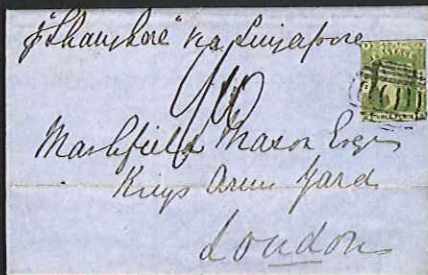 p "Shanghae" via Singapore
Mashfield Mason Esqr
Kings Arms Yard
London